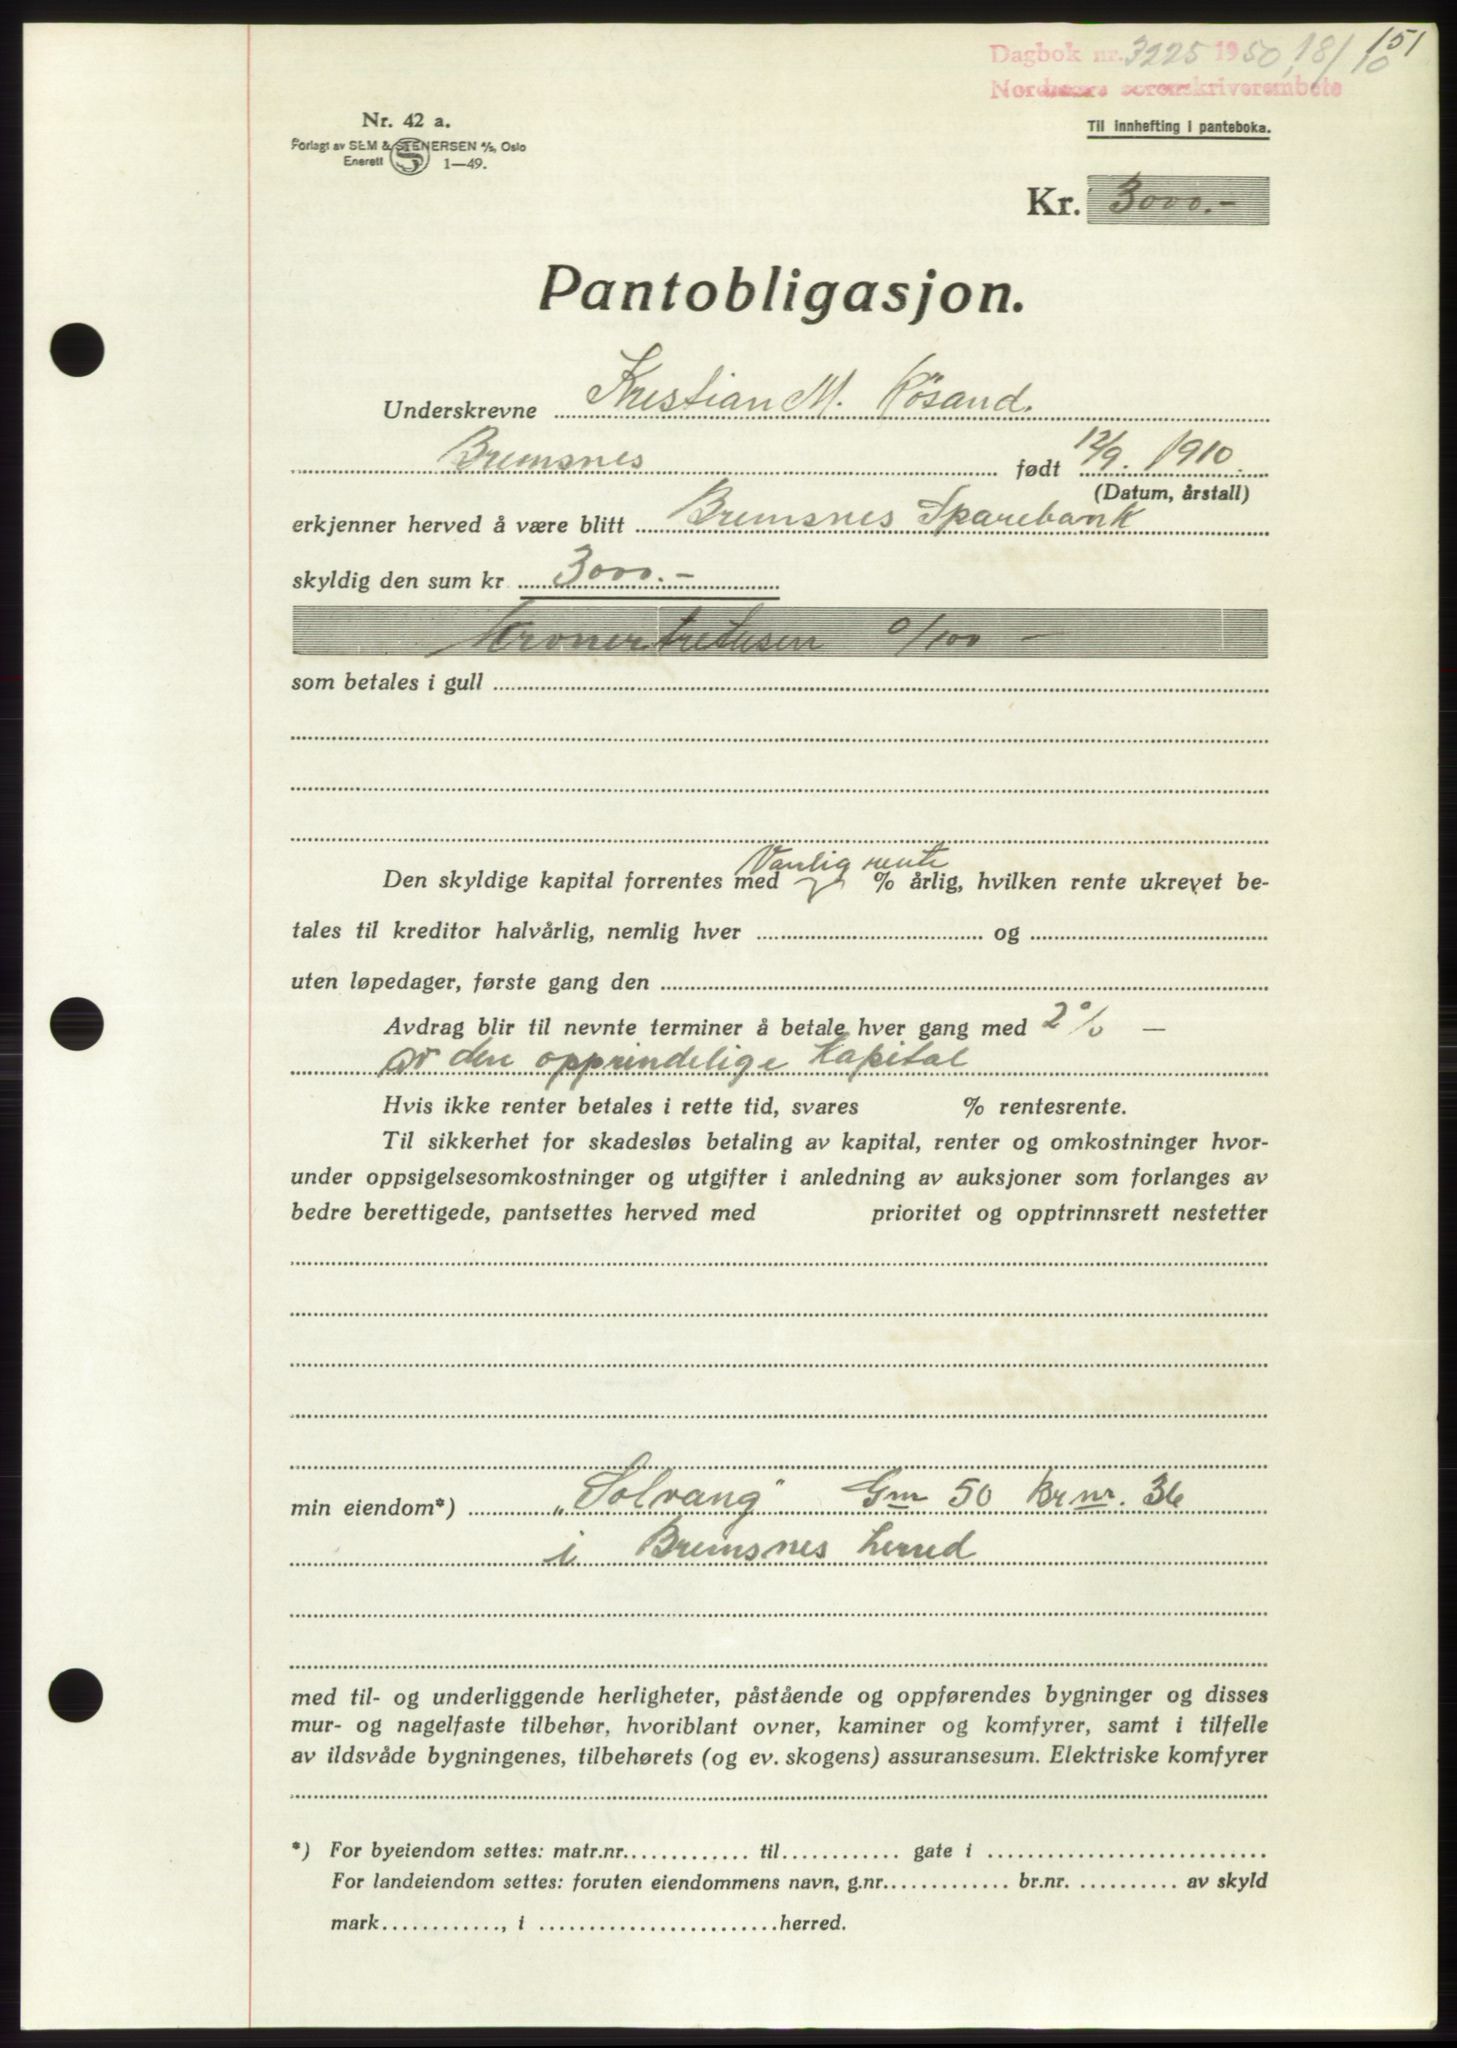 151
Dagbok nr. 3225 1950, 18/10
Nordmøre sorenskriverembete
Nr. 42 a.
Til innhefting i panteboka.
Forlagt av SEM & STENERSEN A/S, Oslo
Enerett S 1—49.
Kr. 3000.-
Pantobligasjon.
Underskrevne Kristian M. Røsand.
Bremsnes født 12/9. 1910.
(Datum, årstall)
erkjenner herved å være blitt Bremsnes Sparebank
skyldig den sum kr 3000.-
Kroner tretusen 0/100 —
som betales i gull
Vanlig rente
Den skyldige kapital forrentes med % årlig, hvilken rente ukrevet be-
tales til kreditor halvårlig, nemlig hver og
uten løpedager, første gang den
Avdrag blir til nevnte terminer å betale hver gang med 2% —
av den opprindelige kapital
Hvis ikke renter betales i rette tid, svares % rentesrente.
Til sikkerhet for skadesløs betaling av kapital, renter og omkostninger hvor-
under oppsigelsesomkostninger og utgifter i anledning av auksjoner som forlanges av
bedre berettigede, pantsettes herved med prioritet og opptrinnsrett nestetter
min eiendom*) „Solvang" Gnr 50 Br nr. 36
i Bremsnes herred
med til- og underliggende herligheter, påstående og oppførendes bygninger og disses
mur- og nagelfaste tilbehør, hvoriblant ovner, kaminer og komfyrer, samt i tilfelle
av ildsvåde bygningenes, tilbehørets (og ev. skogens) assuransesum. Elektriske komfyrer
*) For byeiendom settes: matr.nr. til gate i
For landeiendom settes: foruten eiendommens navn, g.nr. br.nr. av skyld
mark, i herred.